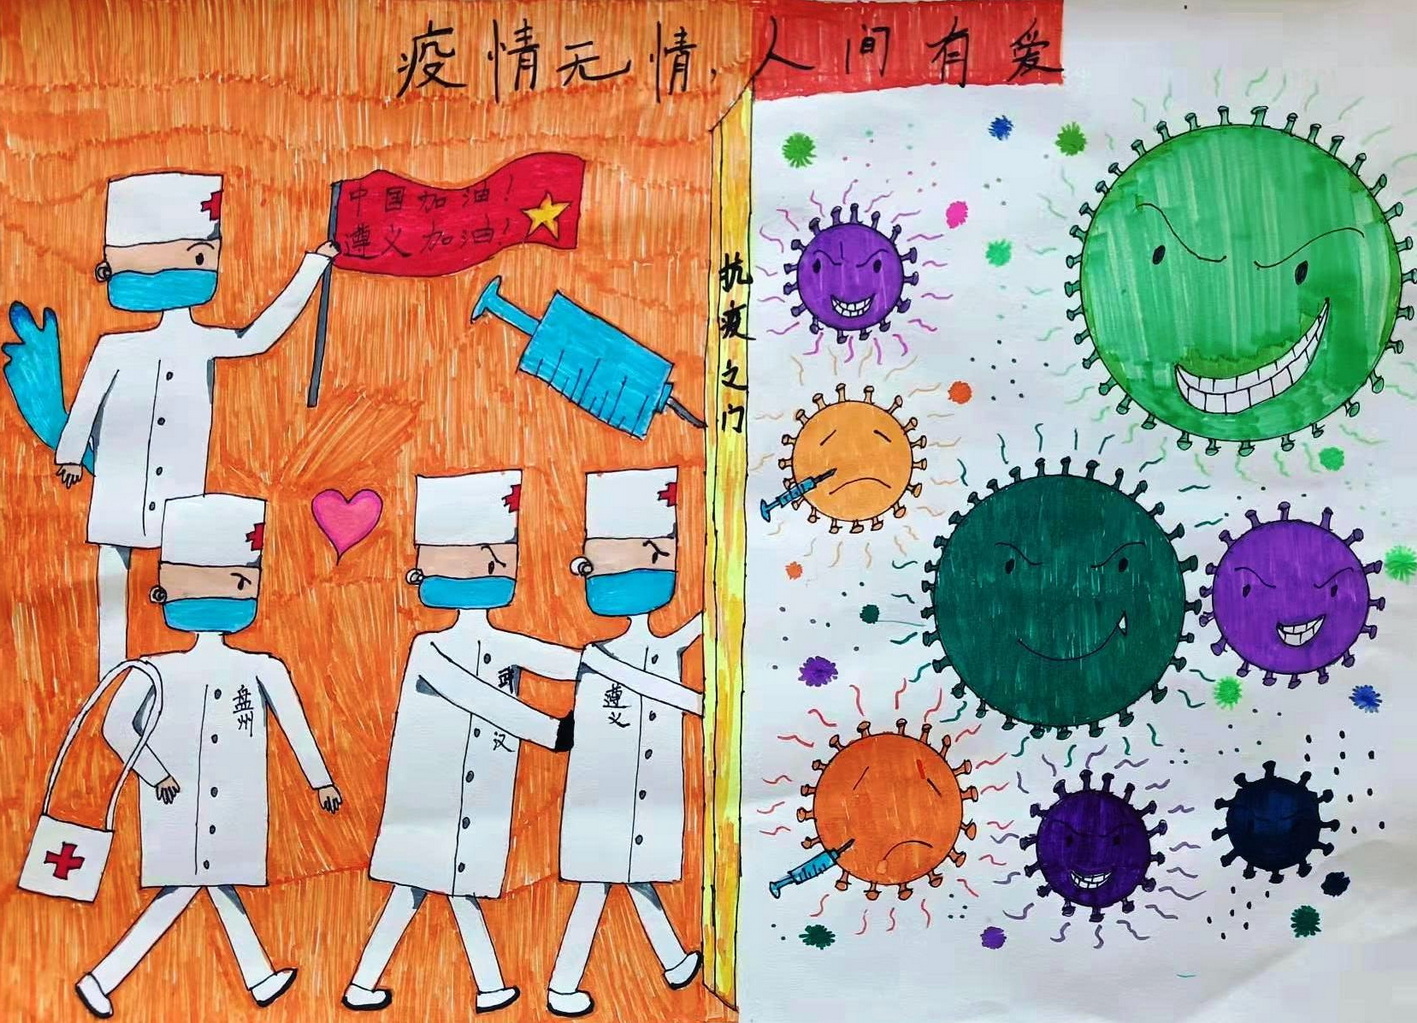 疫情无情，人间有爱
中国加油！
遵义加油！
抗疫之门
盘州
武汉
遵义